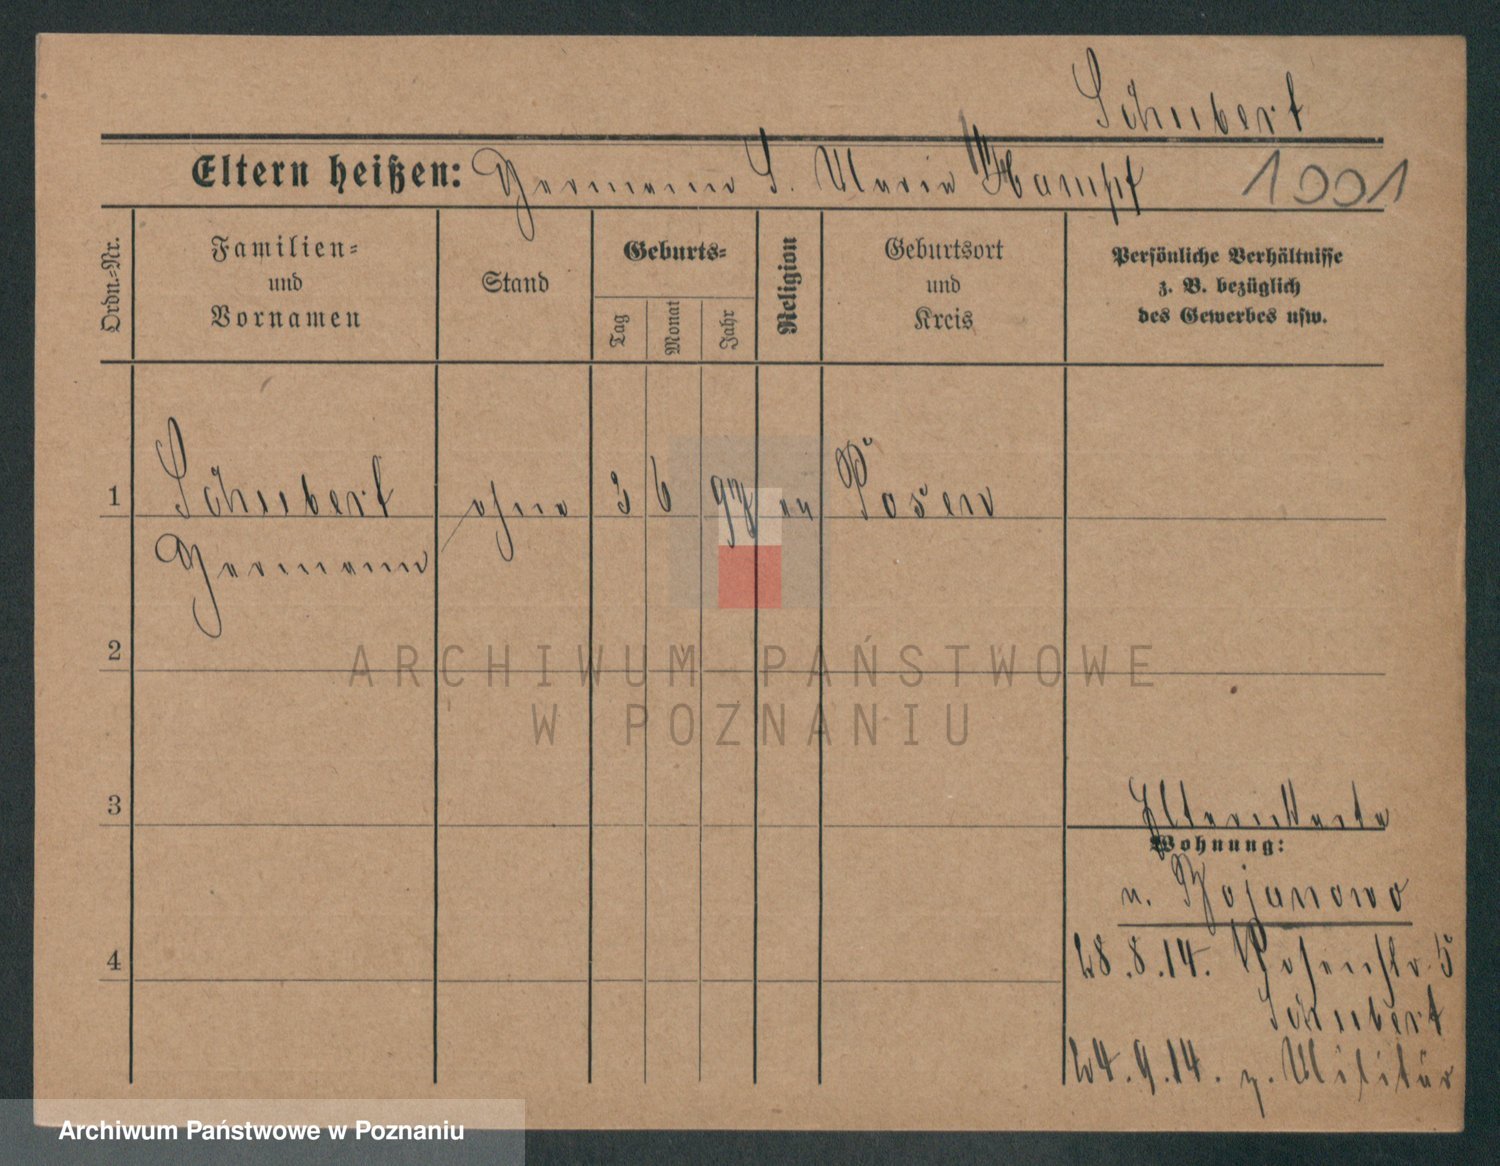 Schubert
Eltern heißen: Hermann S. Maria Kampf
1001
Ordn.-Nr.
Familien-
und
Vornamen
Stand
Geburts-
Tag
Monat
Jahr
Religion
Geburtsort
und
Kreis
Persönliche Verhältnisse
z. B. bezüglich
des Gewerbes usw.
1 Schubert ohne 3 6 97 ev Posen
Hermann
2
ARCHIWUM PAŃSTWOWE
W POZNANIU
3
Elternkarte
Wohnung:
n. Bojanowo
4
28.8.14. Posenstr. 5
Schubert
24.9.14. z. Militär
Archiwum Państwowe w Poznaniu